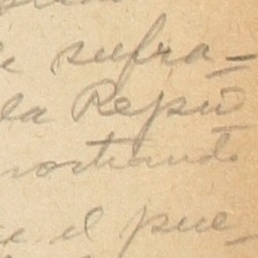 sufra-
la Repú-
mostrando
e el pue-